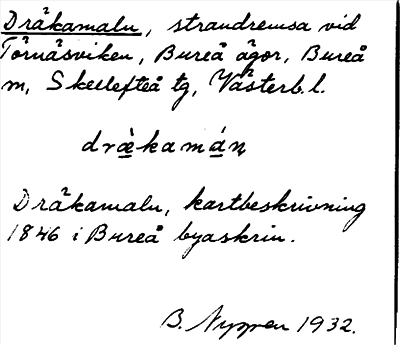 Dräkamaln, strandremsa vid
Törnäsviken, Bureå ägor, Bureå
m, Skellefteå tg, Västerb. l.
dräkamáṇ
Dräkamaln, kartbeskrivning
1846 i Bureå byaskrin.
B. Nygren 1932.